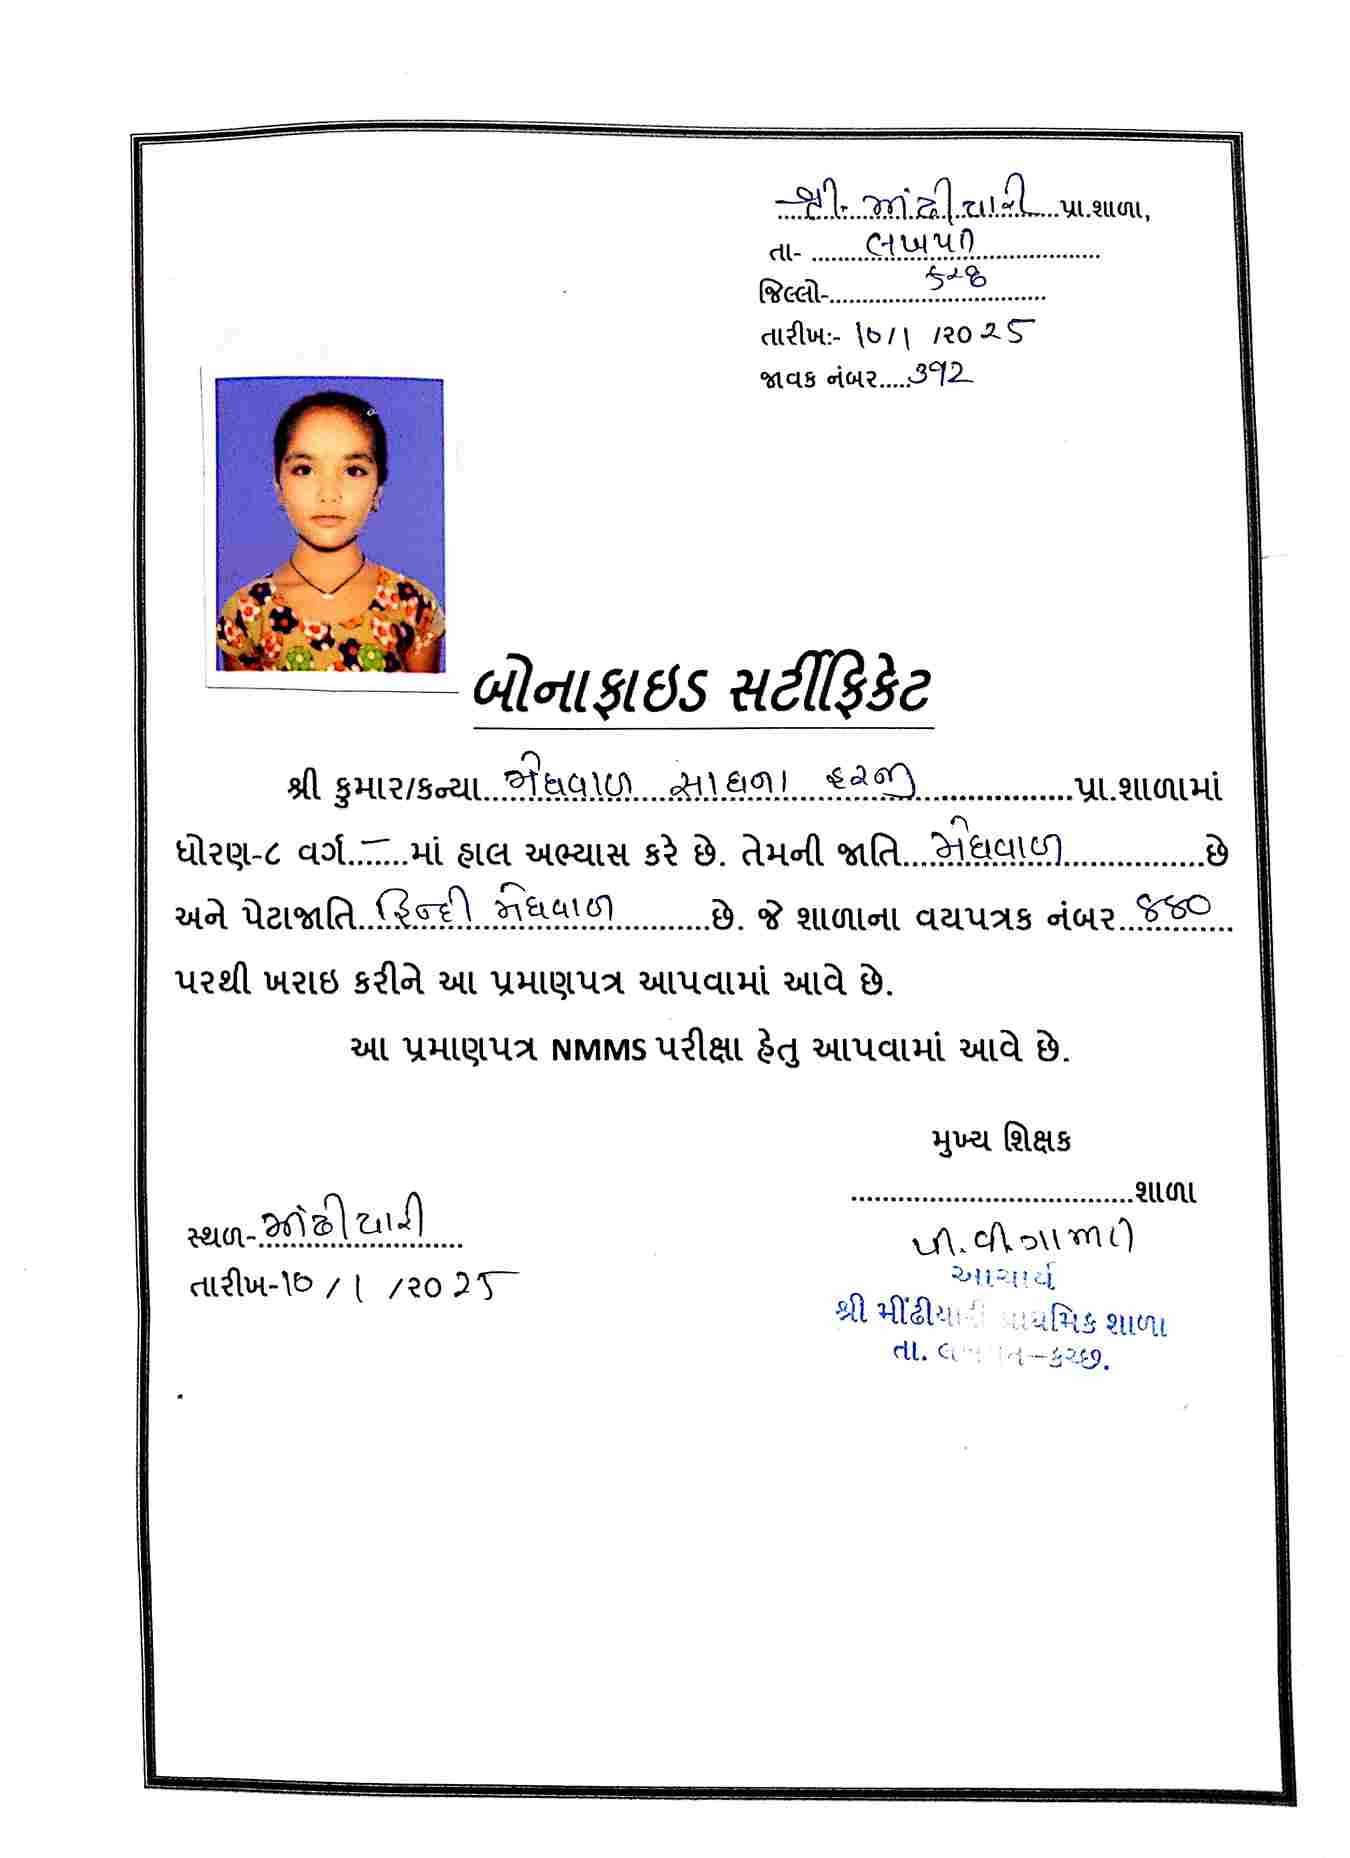 શ્રી. મીંઢીયારી પ્રા.શાળા,
તા- લખપત
જિલ્લો- કચ્છ
તારીખ:- ૧૦/૧ /૨૦૨૫
જાવક નંબર.....૩૧૨
બોનાફાઇડ સર્ટીફિકેટ
શ્રી કુમાર/કન્યા મેઘવાળ સાધના હરજી પ્રા.શાળામાં
ધોરણ-૮ વર્ગ...–...માં હાલ અભ્યાસ કરે છે. તેમની જાતિ મેઘવાળ છે
અને પેટાજાતિ હિન્દી મેઘવાળ છે. જે શાળાના વયપત્રક નંબર ૪૪૦
પરથી ખરાઇ કરીને આ પ્રમાણપત્ર આપવામાં આવે છે.
આ પ્રમાણપત્ર NMMS પરીક્ષા હેતુ આપવામાં આવે છે.
મુખ્ય શિક્ષક
શાળા
સ્થળ- મીંઢીયારી
તારીખ-૧૦/૧ /૨૦૨૫
પી.વી.ગામતી
આચાર્ય
શ્રી મીંઢીયારી પ્રાથમિક શાળા
તા. લખપત-કચ્છ.